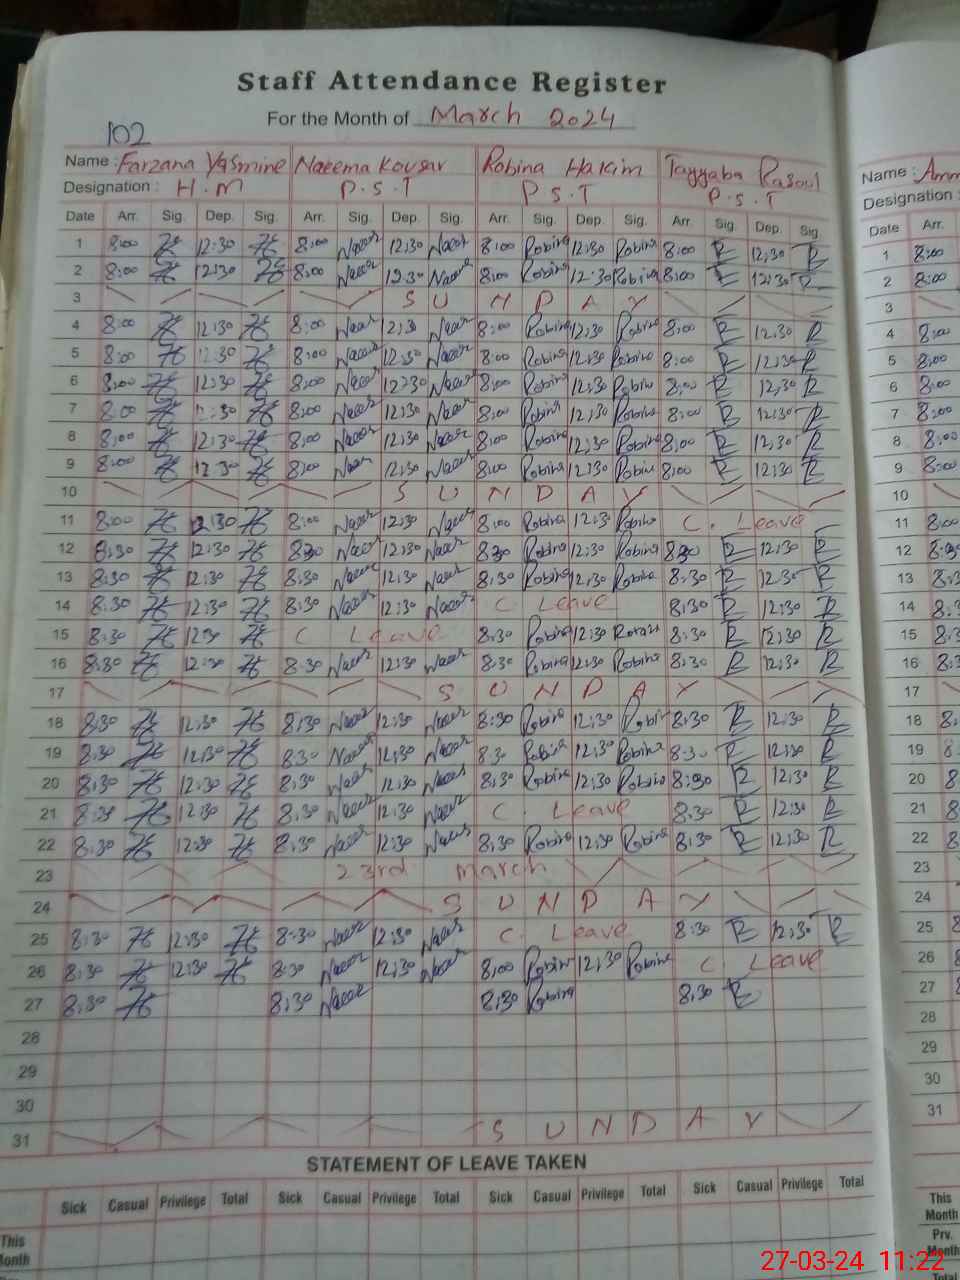 Staff Attendance Register
For the Month of March 2024
102
Name : Farzana Yasmine Naeema Kousar Robina Hakim Tayyaba Rasoul
Designation : H.M P.S.T P.S.T P.S.T
Date Arr. Sig. Dep. Sig. Arr. Sig. Dep. Sig. Arr. Sig. Dep. Sig. Arr. Sig. Dep. Sig.
1 8:00 12:30 8:00 Naeer 12:30 Naeer 8:00 Robina 12:30 Robina 8:00 R 12:30 R
2 8:00 12:30 8:00 Naeer 12:30 Naeer 8:00 Robina 12:30 Robina 8:00 R 12:30 R
3 SUNDAY
4 8:00 12:30 8:00 Naeer 12:30 Naeer 8:00 Robina 12:30 Robina 8:00 R 12:30 R
5 8:00 12:30 8:00 Naeer 12:30 Naeer 8:00 Robina 12:30 Robina 8:00 R 12:30 R
6 8:00 12:30 8:00 Naeer 12:30 Naeer 8:00 Robina 12:30 Robina 8:00 R 12:30 R
7 8:00 12:30 8:00 Naeer 12:30 Naeer 8:00 Robina 12:30 Robina 8:00 R 12:30 R
8 8:00 12:30 8:00 Naeer 12:30 Naeer 8:00 Robina 12:30 Robina 8:00 R 12:30 R
9 8:00 12:30 8:00 Naeer 12:30 Naeer 8:00 Robina 12:30 Robina 8:00 R 12:30 R
10 SUNDAY
11 8:00 12:30 8:00 Naeer 12:30 Naeer 8:00 Robina 12:30 Robina C. Leave
12 8:30 12:30 8:30 Naeer 12:30 Naeer 8:30 Robina 12:30 Robina 8:30 R 12:30 R
13 8:30 12:30 8:30 Naeer 12:30 Naeer 8:30 Robina 12:30 Robina 8:30 R 12:30 R
14 8:30 12:30 8:30 Naeer 12:30 Naeer C. Leave 8:30 R 12:30 R
15 8:30 12:30 C Leave 8:30 Robina 12:30 8:30 R 12:30 R
16 8:30 12:30 8:30 Naeer 12:30 Naeer 8:30 Robina 12:30 Robina 8:30 R 12:30 R
17 SUNDAY
18 8:30 12:30 8:30 Naeer 12:30 Naeer 8:30 Robina 12:30 Robin 8:30 R 12:30 R
19 8:30 12:30 8:30 Naeer 12:30 Naeer 8:30 Robina 12:30 Robina 8:30 R 12:30 R
20 8:30 12:30 8:30 Naeer 12:30 Naeer 8:30 Robina 12:30 Robina 8:30 R 12:30 R
21 8:30 12:30 8:30 Naeer 12:30 Naeer C. Leave 8:30 R 12:30 R
22 8:30 12:30 8:30 Naeer 12:30 Naeer 8:30 Robina 12:30 Robina 8:30 R 12:30 R
23 23rd March
24 SUNDAY
25 8:30 12:30 8:30 Naeer 12:30 Naeer C. Leave 8:30 R 12:30 R
26 8:30 12:30 8:30 Naeer 12:30 Naeer 8:00 Robina 12:30 Robina C. Leave
27 8:30 8:30 Naeer 8:30 Robina 8:30 R
28
29
30
31 SUNDAY
STATEMENT OF LEAVE TAKEN
Sick Casual Privilege Total Sick Casual Privilege Total Sick Casual Privilege Total Sick Casual Privilege Total
This
Month
Name : Amm
Designation :
Date Arr.
1 8:00
2 8:00
3
4 8:00
5 8:00
6 8:00
7 8:00
8 8:00
9 8:00
10
11 8:00
12 8:30
13 8:3
14 8:3
15 8:3
16 8:3
17
18 8:
19 8:
20 8
21 8
22 8
23
24
25 8
26 8
27 8
28
29
30
31
This
Month
Prv.
Month
Total
27-03-24 11:22